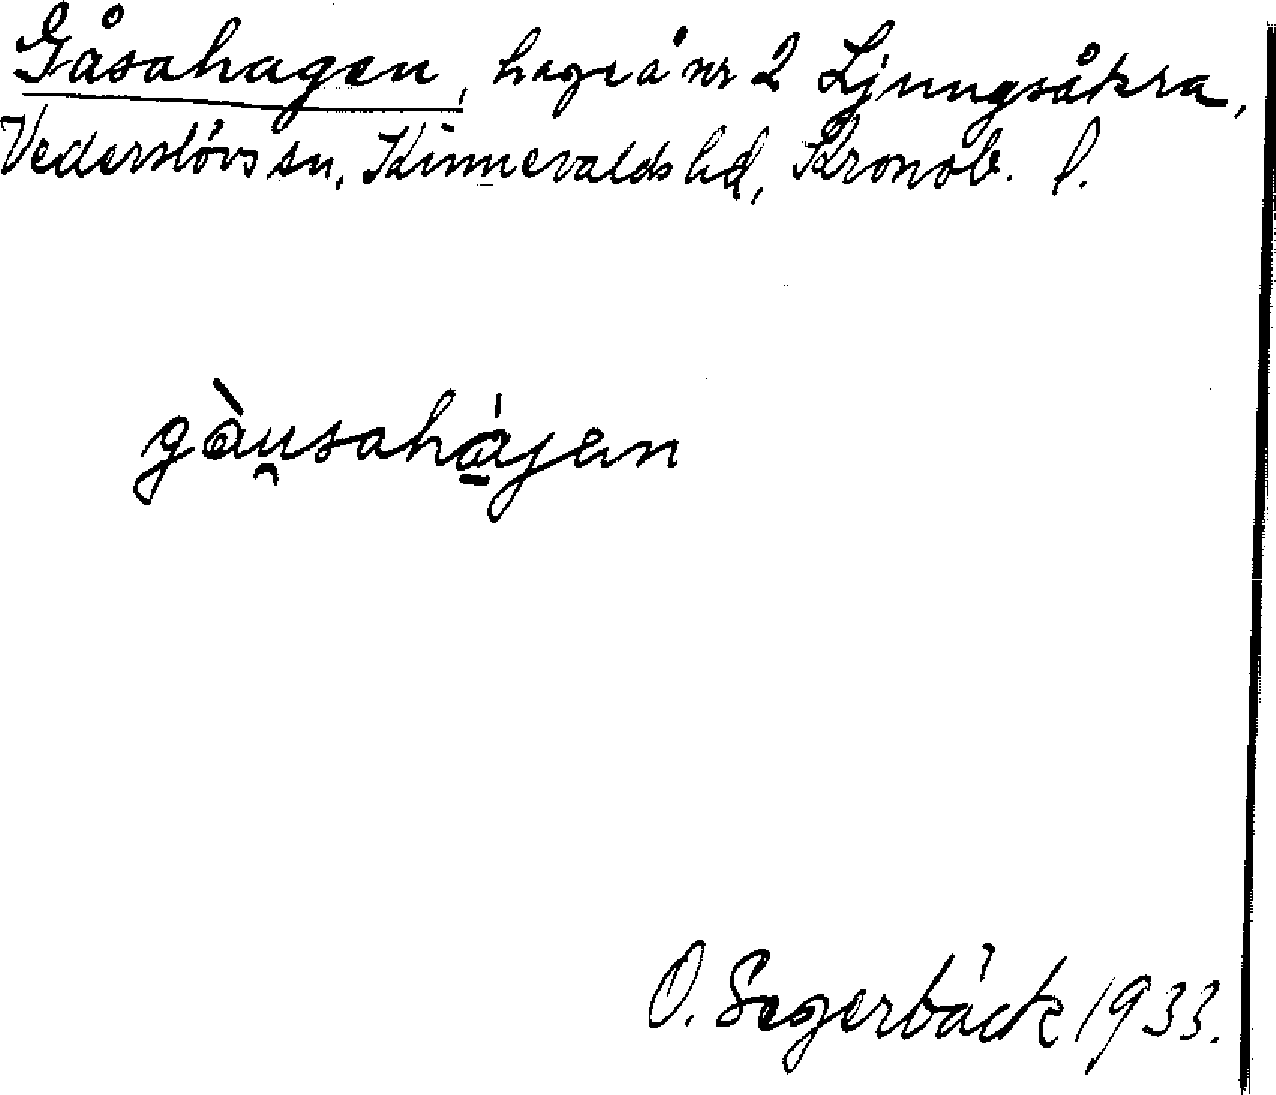 Gåsahagen, hage å nr 2 Ljungsåkra,
Vederslövs sn, Kinnevalds hd, Kronob. l.
gàu̯sahá̱jen
O. Segerbäck 1933.